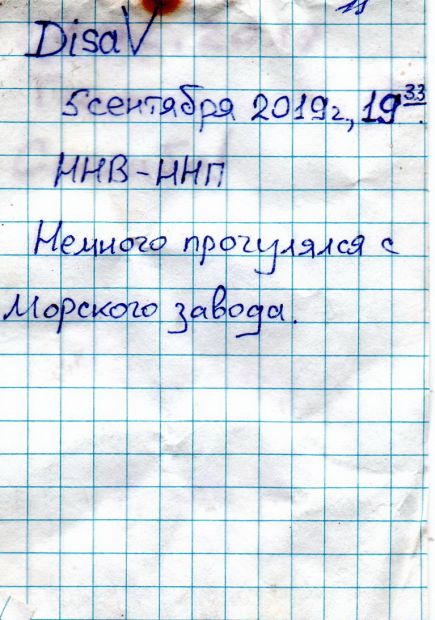 DisaV
5 сентября 2019г., 19 33
ННВ-ННП
Немного прогулялся с
Морского завода.